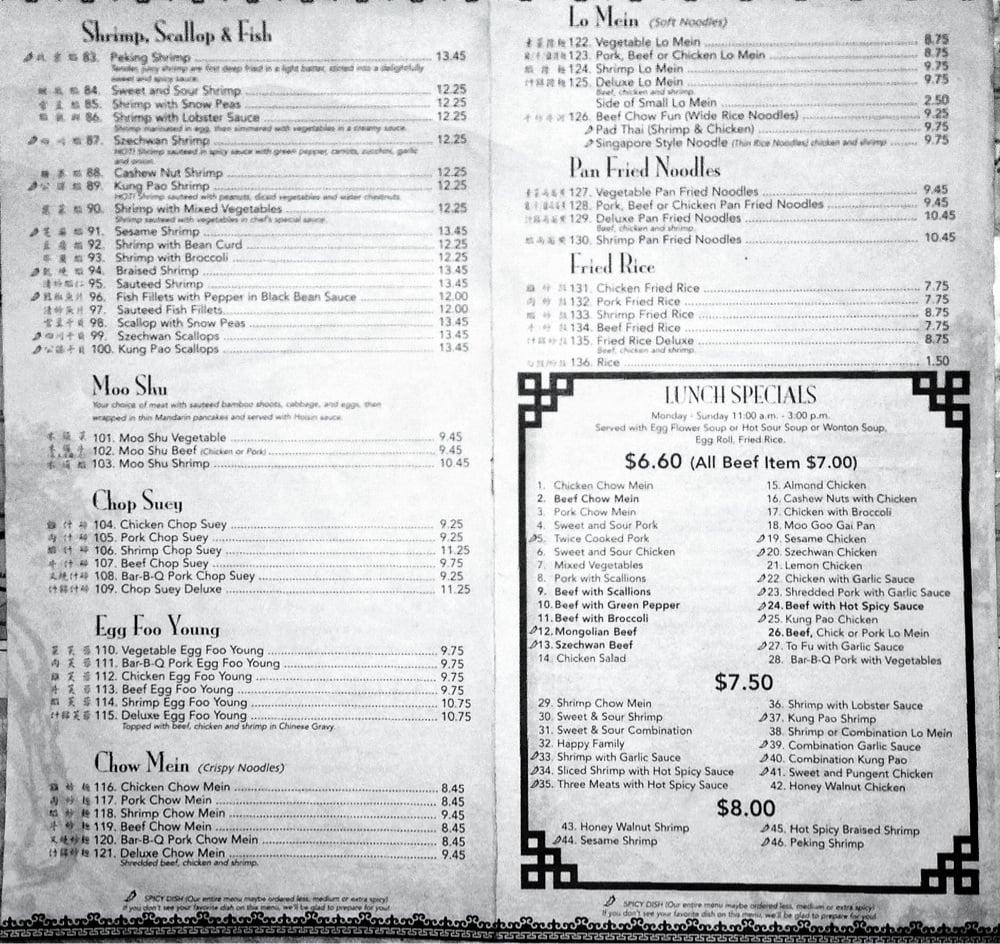 Shrimp, Scallop & Fish
83. Peking Shrimp 13.45
Tender, juicy shrimp are first deep fried in a light batter, stirred into a delightfully
sweet and spicy sauce.
84. Sweet and Sour Shrimp 12.25
85. Shrimp with Snow Peas 12.25
86. Shrimp with Lobster Sauce 12.25
Shrimp marinated in egg, then simmered with vegetables in a creamy sauce.
87. Szechwan Shrimp 12.25
HOT! Shrimp sauteed in spicy sauce with green pepper, carrots, zucchini, garlic
and onion.
88. Cashew Nut Shrimp 12.25
89. Kung Pao Shrimp 12.25
HOT! Shrimp sauteed with peanuts, diced vegetables and water chestnuts.
90. Shrimp with Mixed Vegetables 12.25
Shrimp sauteed with vegetables in chef's special sauce.
91. Sesame Shrimp 13.45
92. Shrimp with Bean Curd 12.25
93. Shrimp with Broccoli 12.25
94. Braised Shrimp 13.45
95. Sauteed Shrimp 13.45
96. Fish Fillets with Pepper in Black Bean Sauce 12.00
97. Sauteed Fish Fillets 12.00
98. Scallop with Snow Peas 13.45
99. Szechwan Scallops 13.45
100. Kung Pao Scallops 13.45
Moo Shu
Your choice of meat with sauteed bamboo shoots, cabbage, and eggs, then
wrapped in thin Mandarin pancakes and served with Hoisin sauce.
101. Moo Shu Vegetable 9.45
102. Moo Shu Beef (Chicken or Pork) 9.45
103. Moo Shu Shrimp 10.45
Chop Suey
104. Chicken Chop Suey 9.25
105. Pork Chop Suey 9.25
106. Shrimp Chop Suey 11.25
107. Beef Chop Suey 9.75
108. Bar-B-Q Pork Chop Suey 9.25
109. Chop Suey Deluxe 11.25
Egg Foo Young
110. Vegetable Egg Foo Young 9.75
111. Bar-B-Q Pork Egg Foo Young 9.75
112. Chicken Egg Foo Young 9.75
113. Beef Egg Foo Young 9.75
114. Shrimp Egg Foo Young 10.75
115. Deluxe Egg Foo Young 10.75
Topped with beef, chicken and shrimp in Chinese Gravy.
Chow Mein (Crispy Noodles)
116. Chicken Chow Mein 8.45
117. Pork Chow Mein 8.45
118. Shrimp Chow Mein 9.45
119. Beef Chow Mein 8.45
120. Bar-B-Q Pork Chow Mein 8.45
121. Deluxe Chow Mein 9.45
Shredded beef, chicken and shrimp.
SPICY DISH (Our entire menu maybe ordered less, medium or extra spicy)
If you don't see your favorite dish on this menu, we'll be glad to prepare for you!
Lo Mein (Soft Noodles)
122. Vegetable Lo Mein 8.75
123. Pork, Beef or Chicken Lo Mein 8.75
124. Shrimp Lo Mein 9.75
125. Deluxe Lo Mein 9.75
Beef, chicken and shrimp.
Side of Small Lo Mein 2.50
126. Beef Chow Fun (Wide Rice Noodles) 9.25
Pad Thai (Shrimp & Chicken) 9.75
Singapore Style Noodle (Thin Rice Noodles) chicken and shrimp 9.75
Pan Fried Noodles
127. Vegetable Pan Fried Noodles 9.45
128. Pork, Beef or Chicken Pan Fried Noodles 9.45
129. Deluxe Pan Fried Noodles 10.45
Beef, chicken and shrimp.
130. Shrimp Pan Fried Noodles 10.45
Fried Rice
131. Chicken Fried Rice 7.75
132. Pork Fried Rice 7.75
133. Shrimp Fried Rice 8.75
134. Beef Fried Rice 7.75
135. Fried Rice Deluxe 8.75
Beef, chicken and shrimp.
136. Rice 1.50
LUNCH SPECIALS
Monday - Sunday 11:00 a.m. - 3:00 p.m.
Served with Egg Flower Soup or Hot Sour Soup or Wonton Soup,
Egg Roll, Fried Rice.
$6.60 (All Beef Item $7.00)
1. Chicken Chow Mein
2. Beef Chow Mein
3. Pork Chow Mein
4. Sweet and Sour Pork
5. Twice Cooked Pork
6. Sweet and Sour Chicken
7. Mixed Vegetables
8. Pork with Scallions
9. Beef with Scallions
10. Beef with Green Pepper
11. Beef with Broccoli
12. Mongolian Beef
13. Szechwan Beef
14. Chicken Salad
15. Almond Chicken
16. Cashew Nuts with Chicken
17. Chicken with Broccoli
18. Moo Goo Gai Pan
19. Sesame Chicken
20. Szechwan Chicken
21. Lemon Chicken
22. Chicken with Garlic Sauce
23. Shredded Pork with Garlic Sauce
24. Beef with Hot Spicy Sauce
25. Kung Pao Chicken
26. Beef, Chick or Pork Lo Mein
27. To Fu with Garlic Sauce
28. Bar-B-Q Pork with Vegetables
$7.50
29. Shrimp Chow Mein
30. Sweet & Sour Shrimp
31. Sweet & Sour Combination
32. Happy Family
33. Shrimp with Garlic Sauce
34. Sliced Shrimp with Hot Spicy Sauce
35. Three Meats with Hot Spicy Sauce
36. Shrimp with Lobster Sauce
37. Kung Pao Shrimp
38. Shrimp or Combination Lo Mein
39. Combination Garlic Sauce
40. Combination Kung Pao
41. Sweet and Pungent Chicken
42. Honey Walnut Chicken
$8.00
43. Honey Walnut Shrimp
44. Sesame Shrimp
45. Hot Spicy Braised Shrimp
46. Peking Shrimp
SPICY DISH (Our entire menu maybe ordered less, medium or extra spicy)
If you don't see your favorite dish on this menu, we'll be glad to prepare for you!